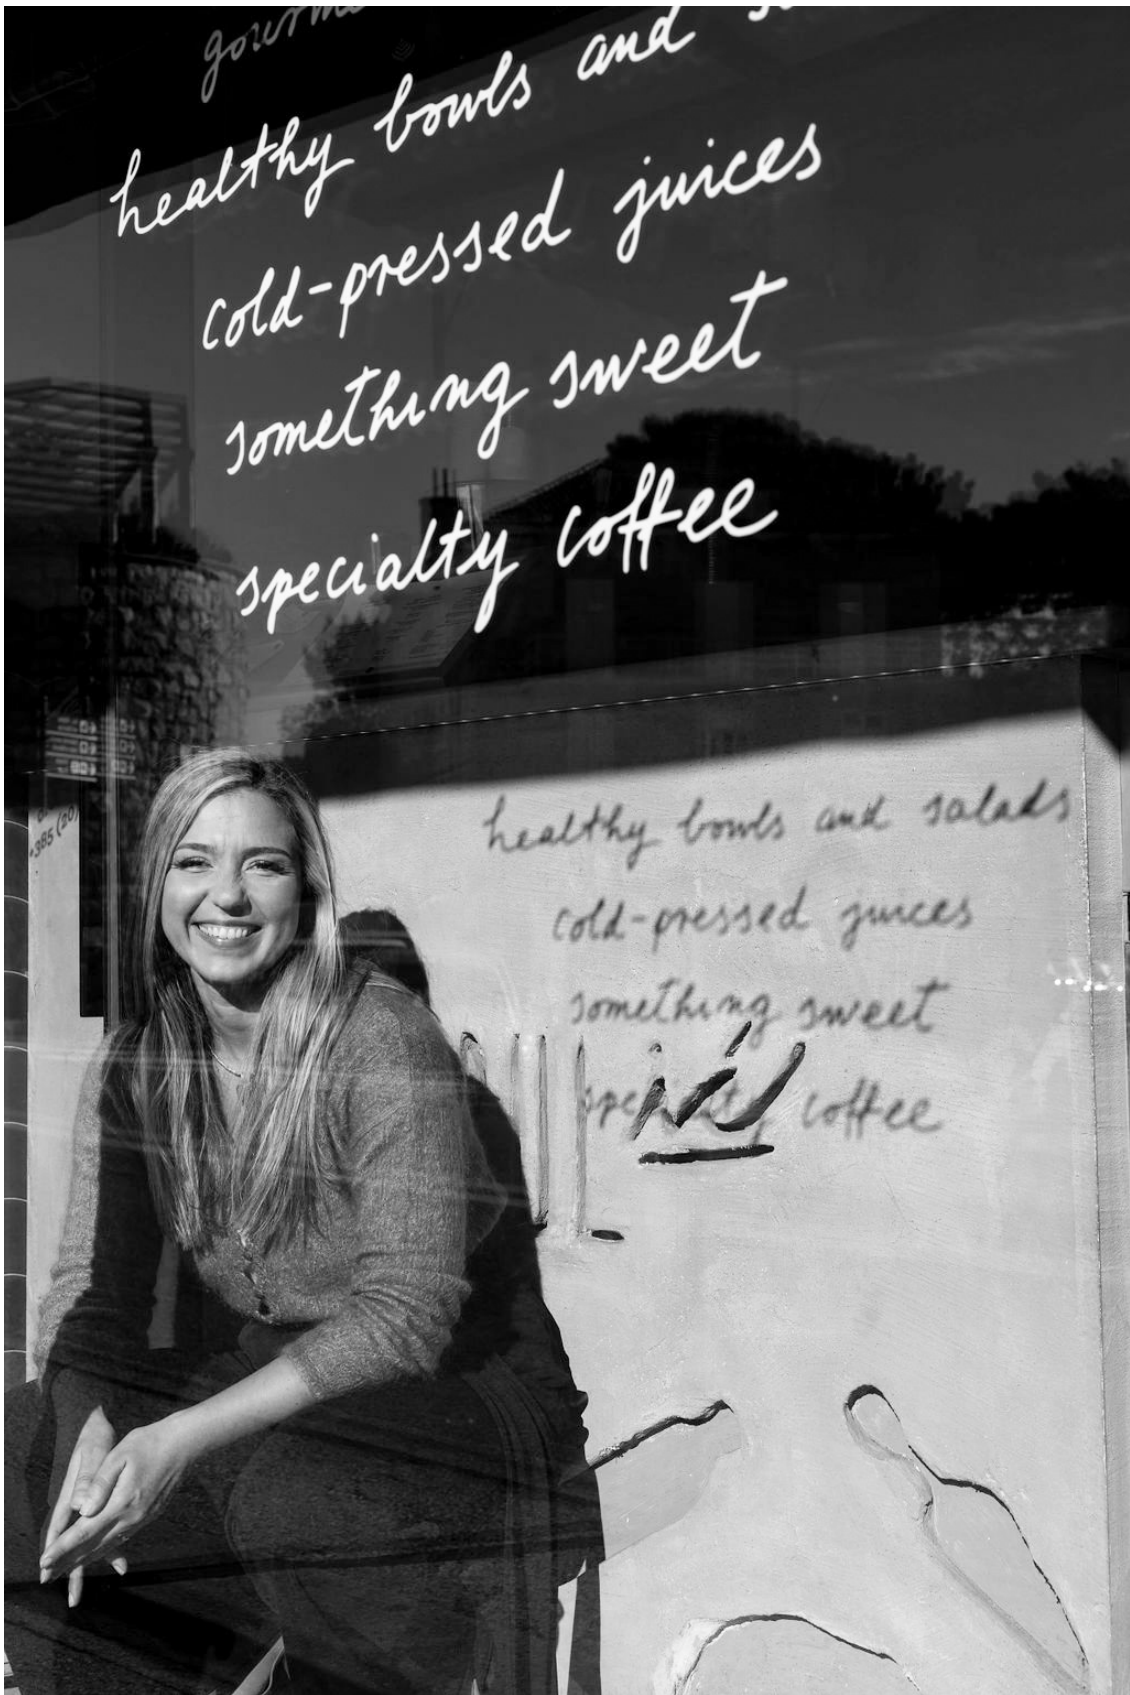 healthy bowls and
cold-pressed juices
something sweet
specialty coffee
+385 (20)
healthy bowls and salads
cold-pressed juices
something sweet
coffee